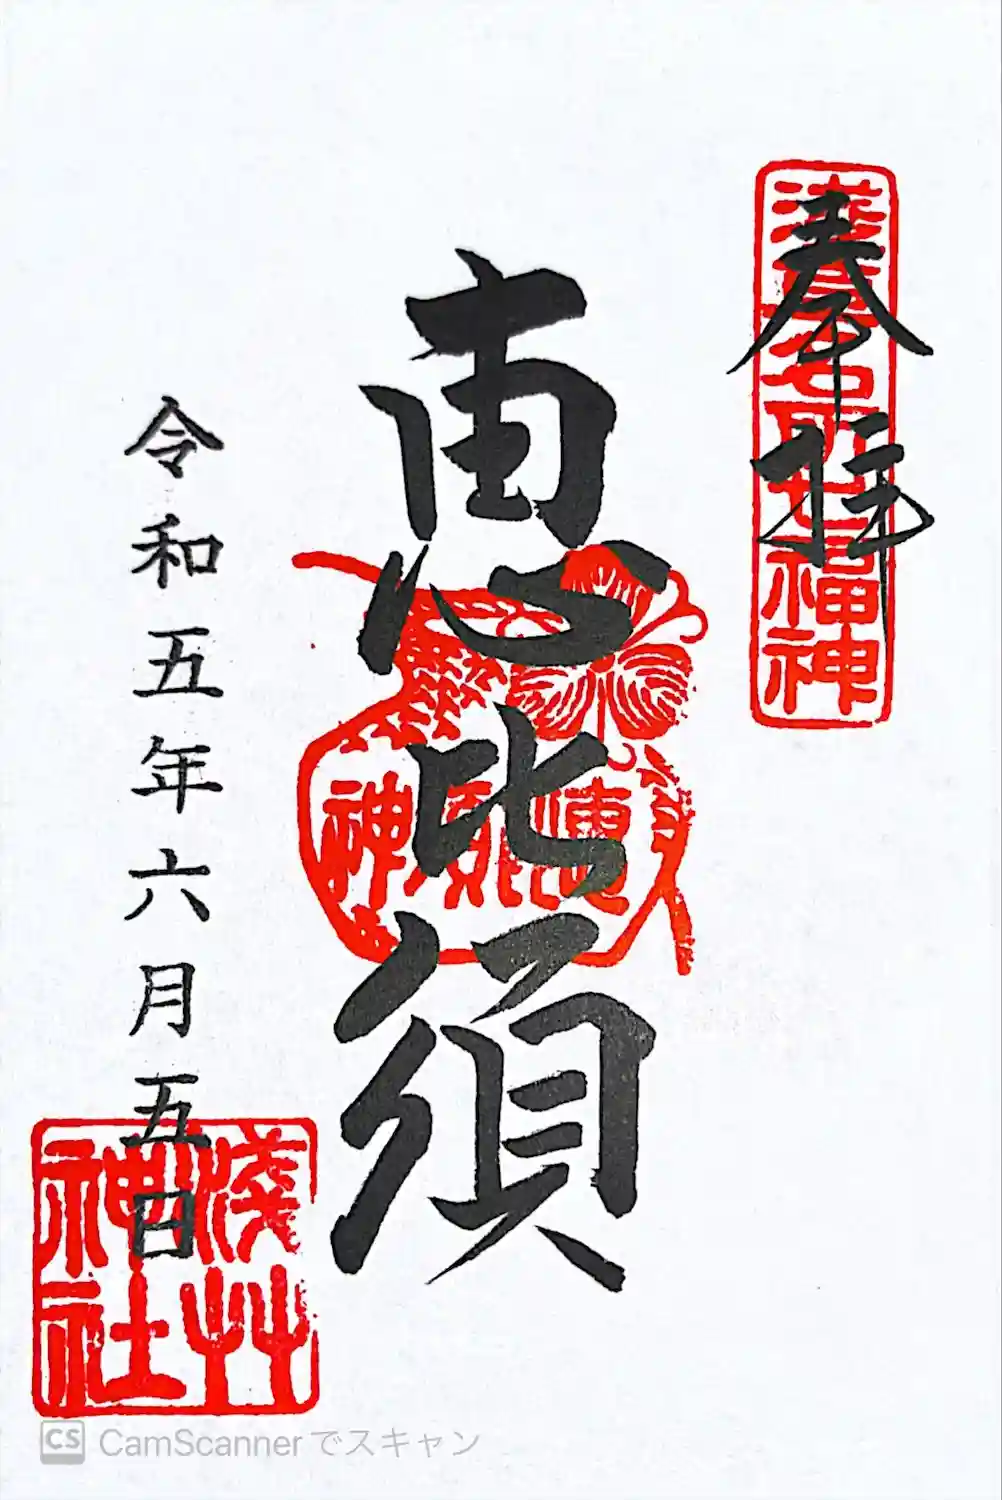 奉拝
浅草名所七福神
恵比須
令和五年六月五日
浅草神社
CS CamScannerでスキャン